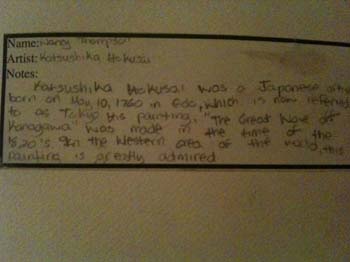 Name: Thompson
Artist: Katsushika Hokusai
Notes:
Katsushika Hokusai was a Japanese artist
born on May, 10, 1760 in Edo, which is now referred
to as Tokyo. His painting, "The Great Wave off
Kanagawa" was made in the time of the
1820's. In the Western area of the world, this
painting is greatly admired